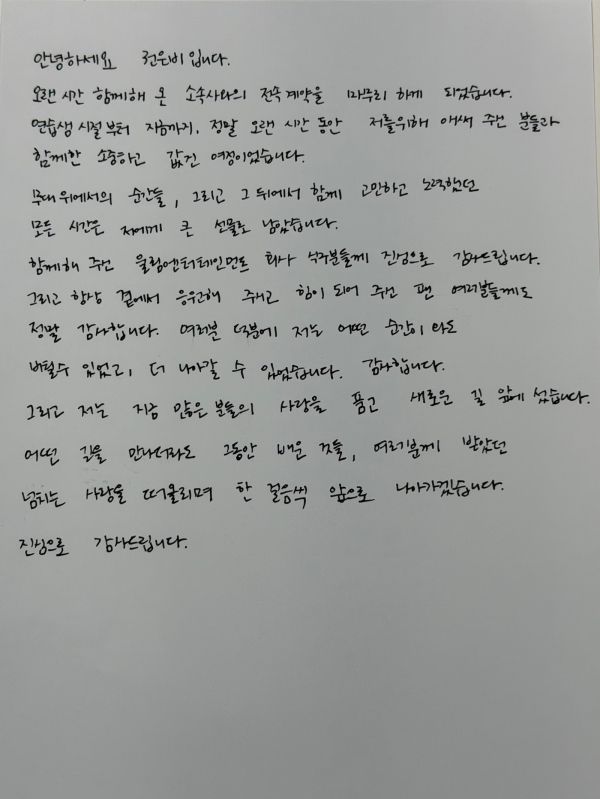 안녕하세요 권은비입니다.
오랜 시간 함께해 온 소속사와의 전속계약을 마무리 하게 되었습니다.
연습생 시절부터 지금까지, 정말 오랜 시간 동안 저를위해 애써 주신 분들과
함께한 소중하고 값진 여정이었습니다.
무대 위에서의 순간들, 그리고 그 뒤에서 함께 고민하고 노력했던
모든 시간은 저에게 큰 선물로 남았습니다.
함께해 주신 울림엔터테인먼트 회사 식구분들께 진심으로 감사드립니다.
그리고 항상 곁에서 응원해 주시고 힘이 되어 주신 팬 여러분들께도
정말 감사합니다. 여러분 덕분에 저는 어떤 순간이 와도
버틸수 있었고, 더 나아갈 수 있었습니다. 감사합니다.
그리고 저는 지금 많은 분들의 사랑을 품고 새로운 길 앞에 섰습니다.
어떤 길을 만나더라도 그동안 배운 것들, 여러분께 받았던
넘치는 사랑을 떠올리며 한 걸음씩 앞으로 나아가겠습니다.
진심으로 감사드립니다.